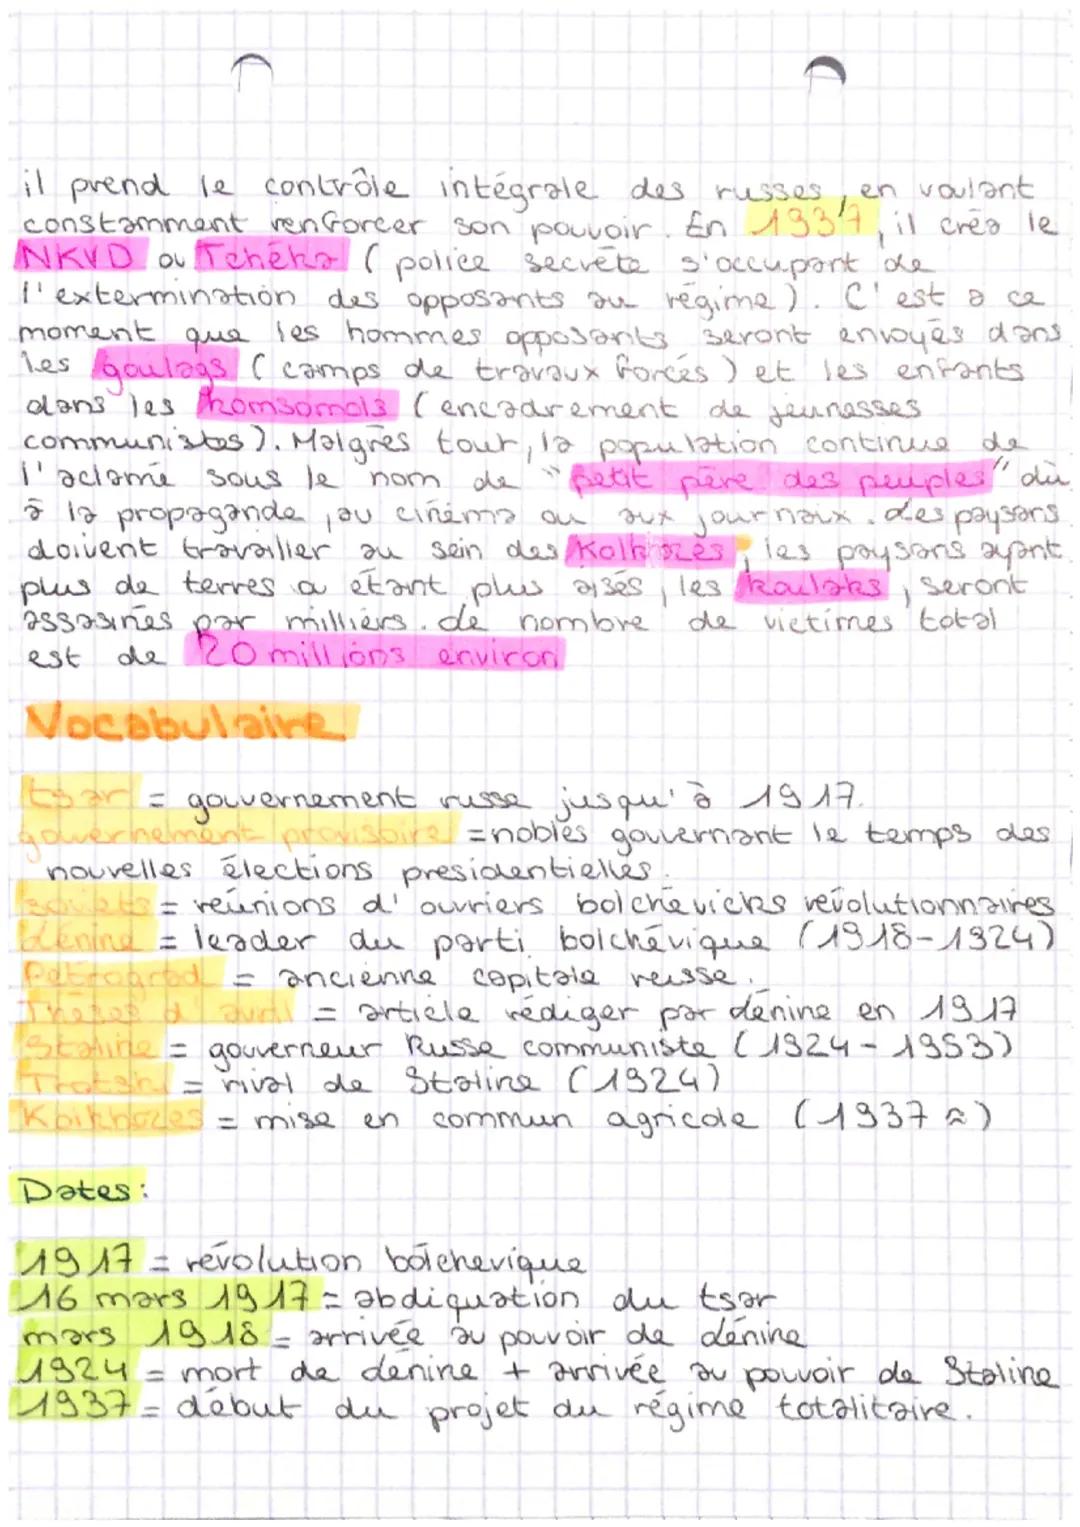 il prend le contrôle intégrale des russes, en voulant
constamment renforcer son pouvoir. En 1937, il créa le
NKVD ou Tchéka (police secrète s'occupant de
l'extermination des opposants au régime). C'est a ce
moment que les hommes opposants seront envoyés dans
les goulags (camps de travaux forcés) et les enfants
dans les komsomols (encadrement de jeunesses
communistes). Malgrés tout, la population continue de
l'aclamé sous le nom de "petit père des peuples" dû
à la propagande, au cinéma ou aux journaix. Les paysans
doivent travailler au sein des Kolkhozes, les paysans ayant
plus de terres a étant plus aisés, les koulaks, seront
assasinés par milliers. Le nombre de victimes total
est de 20 millions environ
Vocabulaire
tsar = gouvernement russe jusqu'à 1917.
gouvernement provisoire = nobles gouvernant le temps des
nouvelles élections presidentielles.
soviets = réunions d'ouvriers bolchévicks révolutionnaires
Lénine = leader du parti bolchévique (1918-1924)
Petrograd = ancienne capitale russe.
Thèses d'avril = article rédiger par Lénine en 1917
Staline = gouverneur Russe communiste (1924-1953)
Trotski = rival de Staline (1924)
Kolkhozes = mise en commun agricole (1937 ≈)
Dates:
1917 = révolution bolchevique
16 mars 1917 = abdiquation du tsar
mars 1918 = arrivée au pouvoir de Lénine
1924 = mort de Lénine + arrivée au pouvoir de Staline
1937 = début du projet du régime totalitaire.